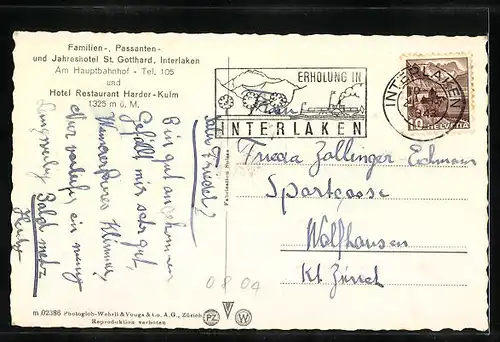 Familien-, Passanten-
und Jahreshotel St. Gotthard, Interlaken
Am Hauptbahnhof - Tel. 105
und
Hotel Restaurant Harder-Kulm
1325 m ü. M.
ERHOLUNG IN
INTERLAKEN
INTERLAKEN
HELVETIA
Bin gut angekommen
Gefällt mir sehr gut,
Wunderbares Klima,
Nur vorläufig ein wenig
langweilig Bald mehr
Frieda Zollinger
Sportgasse
Wolfhausen
Kt. Zürich
0804
m 02386 Photoglob-Wehrli & Vouga & Co. A.G., Zürich
Reproduktion verboten
PZ
W